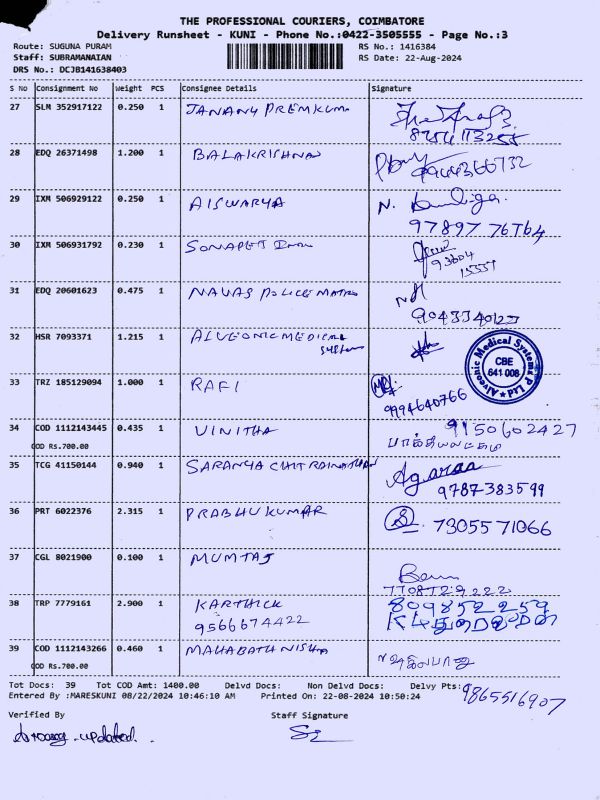 THE PROFESSIONAL COURIERS, COIMBATORE
Delivery Runsheet - KUNI - Phone No.:0422-3505555 - Page No.:3
Route: SUGUNA PURAM
RS No.: 1416384
Staff: SUBRAMANAIAN
RS Date: 22-Aug-2024
DRS No.: DCJB141638403
S No Consignment No Weight PCS Consignee Details Signature
27 SLM 352917122 0.250 1 JANANY PREMKUM
28 EDQ 26371498 1.200 1 BALAKRISHNAN
29 IXM 506929122 0.250 1 AISWARYA N.
97897 76764
30 IXM 506931792 0.230 1 SONAPETT
93604
15337
31 EDQ 20601623 0.475 1 NAVAS POLICE
9043340123
32 HSR 7093371 1.215 1 ALVEONIC MEDICAL
System
Alveonic Medical Systems P Ltd
CBE
641 008
33 TRZ 185129094 1.000 1 RAFI
9994640766
34 COD 1112143445 0.435 1 VINITHA 9150602427
COD Rs.700.00
35 TCG 41150144 0.940 1 SARANYA CHITRAINATHAN
9787383599
36 PRT 6022376 2.315 1 PRABHU KUMAR 73055 71066
37 CGL 8021900 0.100 1 MUMTAJ
7708729222
38 TRP 7779161 2.900 1 KARTHICK 809852259
9566674422
39 COD 1112143266 0.460 1 MAHABATH NISHA
COD Rs.700.00
Tot Docs: 39 Tot COD Amt: 1400.00 Delvd Docs: Non Delvd Docs: Delvy Pts:
9865516907
Entered By :MARESKUNI 08/22/2024 10:46:10 AM Printed On: 22-08-2024 10:50:24
Verified By Staff Signature
updated.